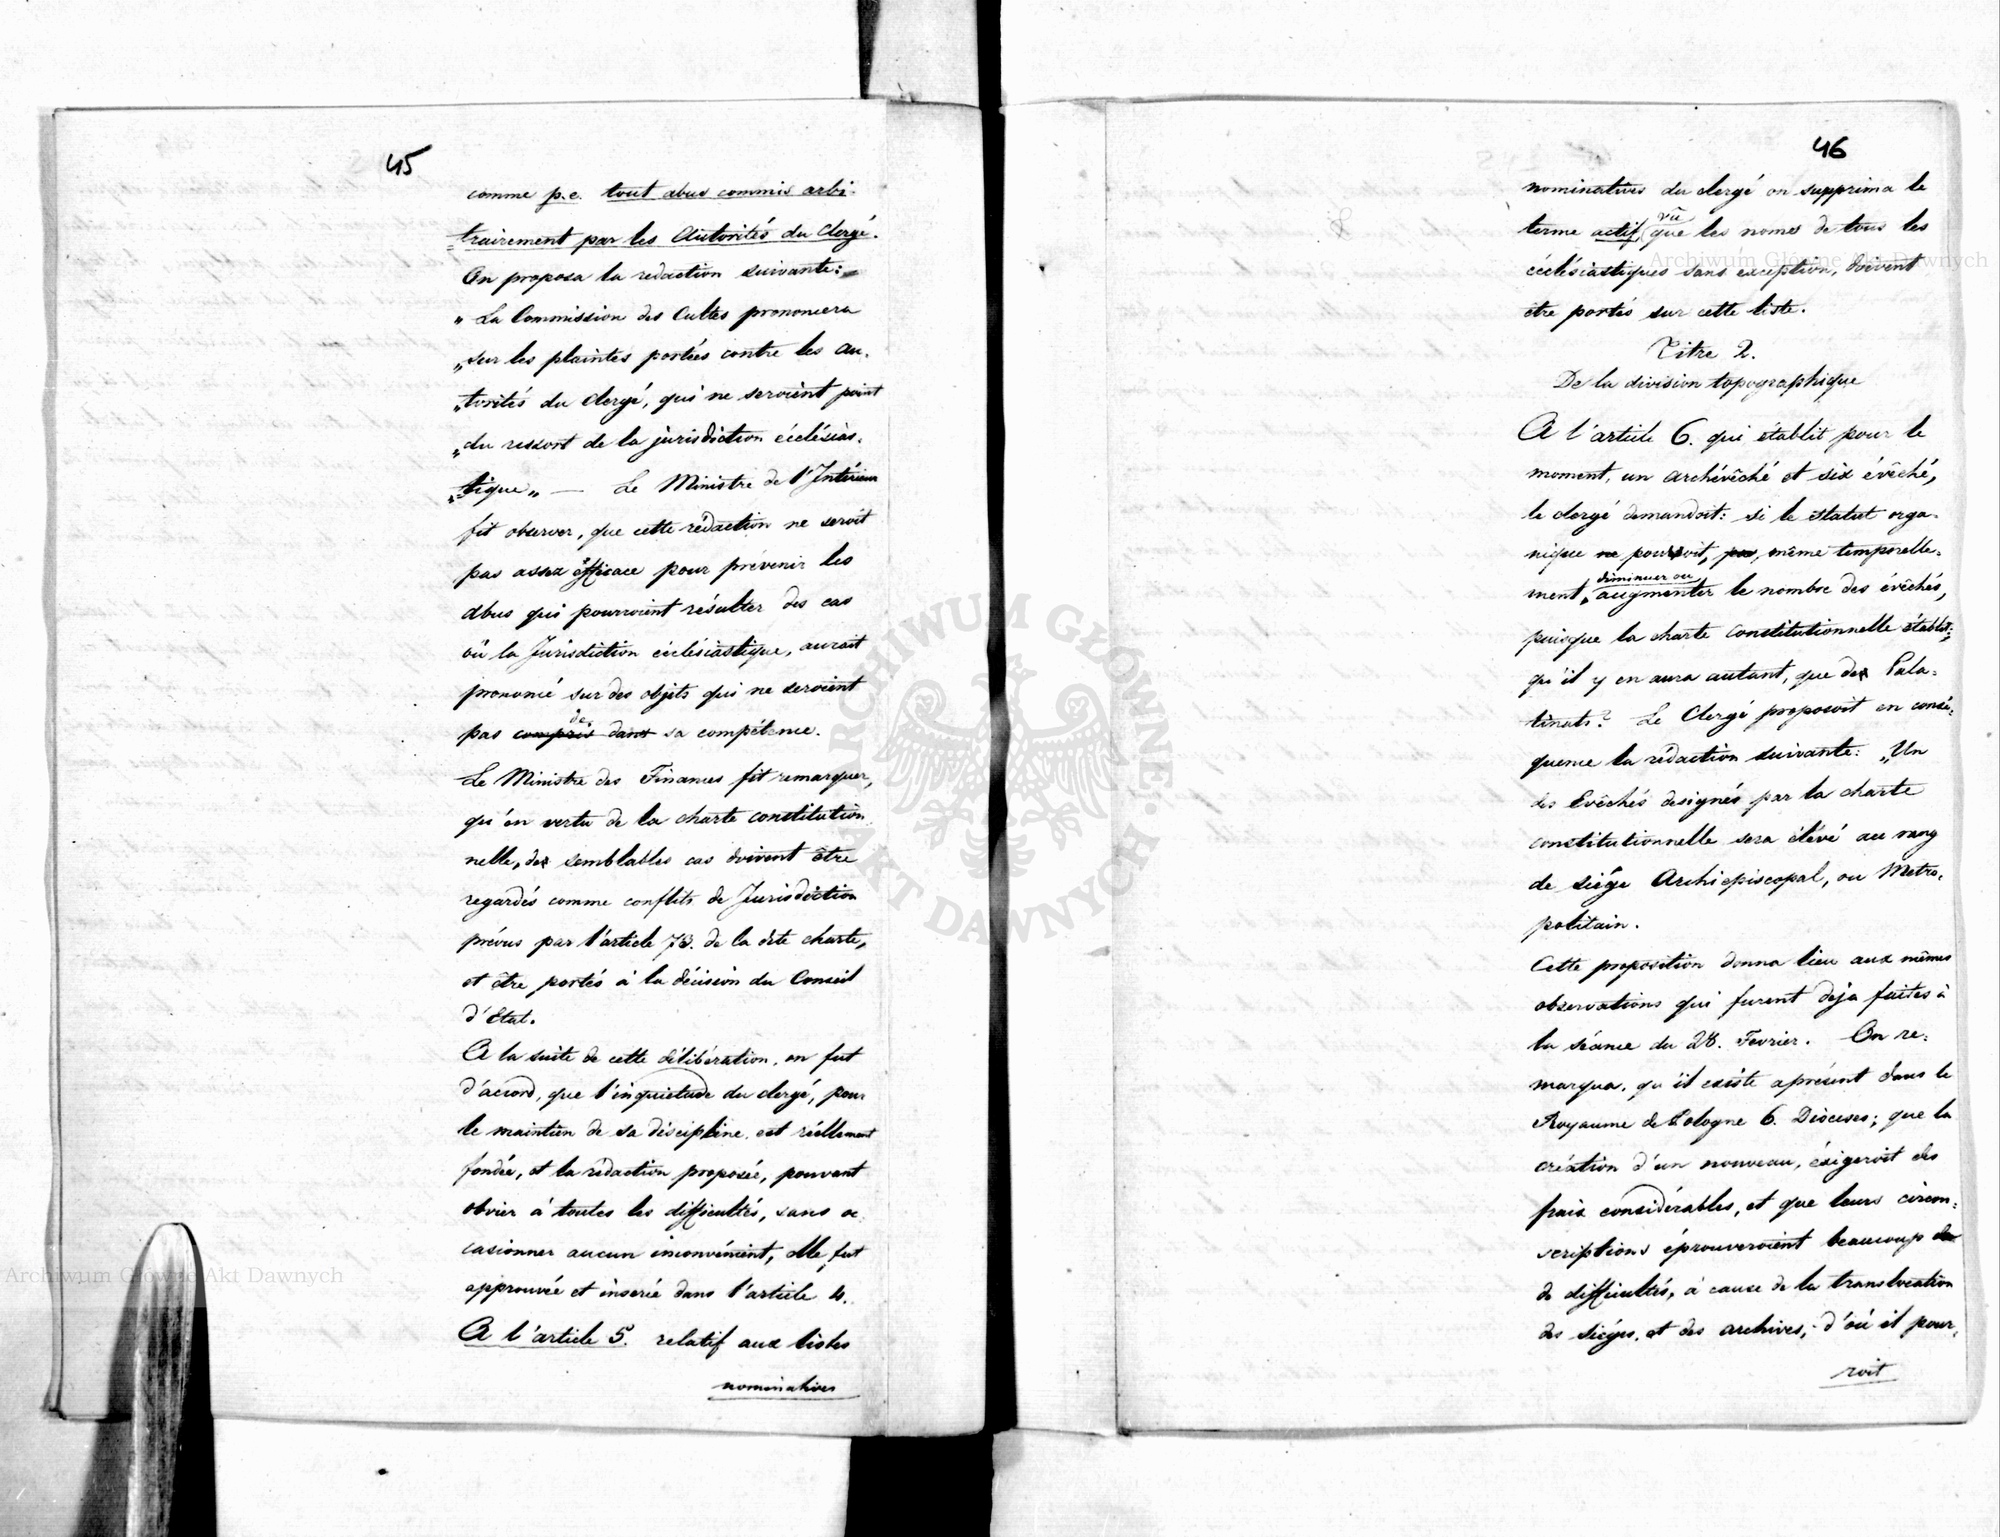 45
comme p.e. tout abus commis arbi-
trairement par les Autorités du Clergé.
On proposa la redaction suivante:
„ La Commission des Cultes prononcera
„ sur les plaintes portées contre les au-
„ torités du Clergé, qui ne seroient point
„ du ressort de la jurisdiction écclésias-
„ tique „ — Le Ministre de l'Intérieur
fit observer, que cette rédaction ne seroit
pas assez éfficace pour prévenir les
abus qui pourroient résulter des cas
où la Jurisdiction écclésiastique, auroit
prononcé sur des objets qui ne seroient
pas compris dans de sa compétence.
Le Ministre des Finances fit remarquer,
qu'en vertu de la charte constitution-
nelle, de semblables cas doivent être
regardés comme conflits de Jurisdiction
prévus par l'article 73. de la dite charte,
et être portés à la décision du Conseil
d'Etat.
A la suite de cette délibération, on fut
d'accord, que l'inquietude du clergé, pour
le maintien de sa discipline, est réellement
fondée, et la rédaction proposée, pouvant
obvier à toutes les difficultés, sans oc-
casionner aucun inconvénient, elle fut
approuvée et inserée dans l'article 4.
A l'article 5. relatif aux listes
nominatives
46
nominatives du clergé on supprima le
terme actif, vû que les noms de tous les
écclésiastiques sans exception, doivent
être portés sur cette liste.
Titre 2.
De la division topographique
A l'article 6. qui établit pour le
moment, un archévêché et six évêché,
le clergé demandoit: si le statut orga-
nique ne pourroit, pas, même temporelle-
ment, diminuer ou augmenter le nombre des évêchés,
puisque la charte constitutionnelle établit:
qu'il y en aura autant, que de Pala-
tinats? Le Clergé proposoit en consé-
quence la rédaction suivante: „Un
des Evêchés designés par la charte
constitutionnelle sera élévé au rang
de siége Archiepiscopal, ou Metro-
politain.
Cette proposition donna lieu aux mêmes
observations qui furent deja faites à
la séance du 28. Fevrier. On re-
marqua, qu'il existe aprésent dans le
Royaume de Pologne 6. Diocèses; que la
création d'un nouveau, éxigeroit des
frais considérables, et que leurs circon-
scriptions éprouveroient beaucoup
de difficultés, à cause de la translocation
des siéges, et des archives; d'où il pour-
roit
Archiwum Główne Akt Dawnych
Archiwum Główne Akt Dawnych
ARCHIWUM GŁÓWNE
AKT DAWNYCH